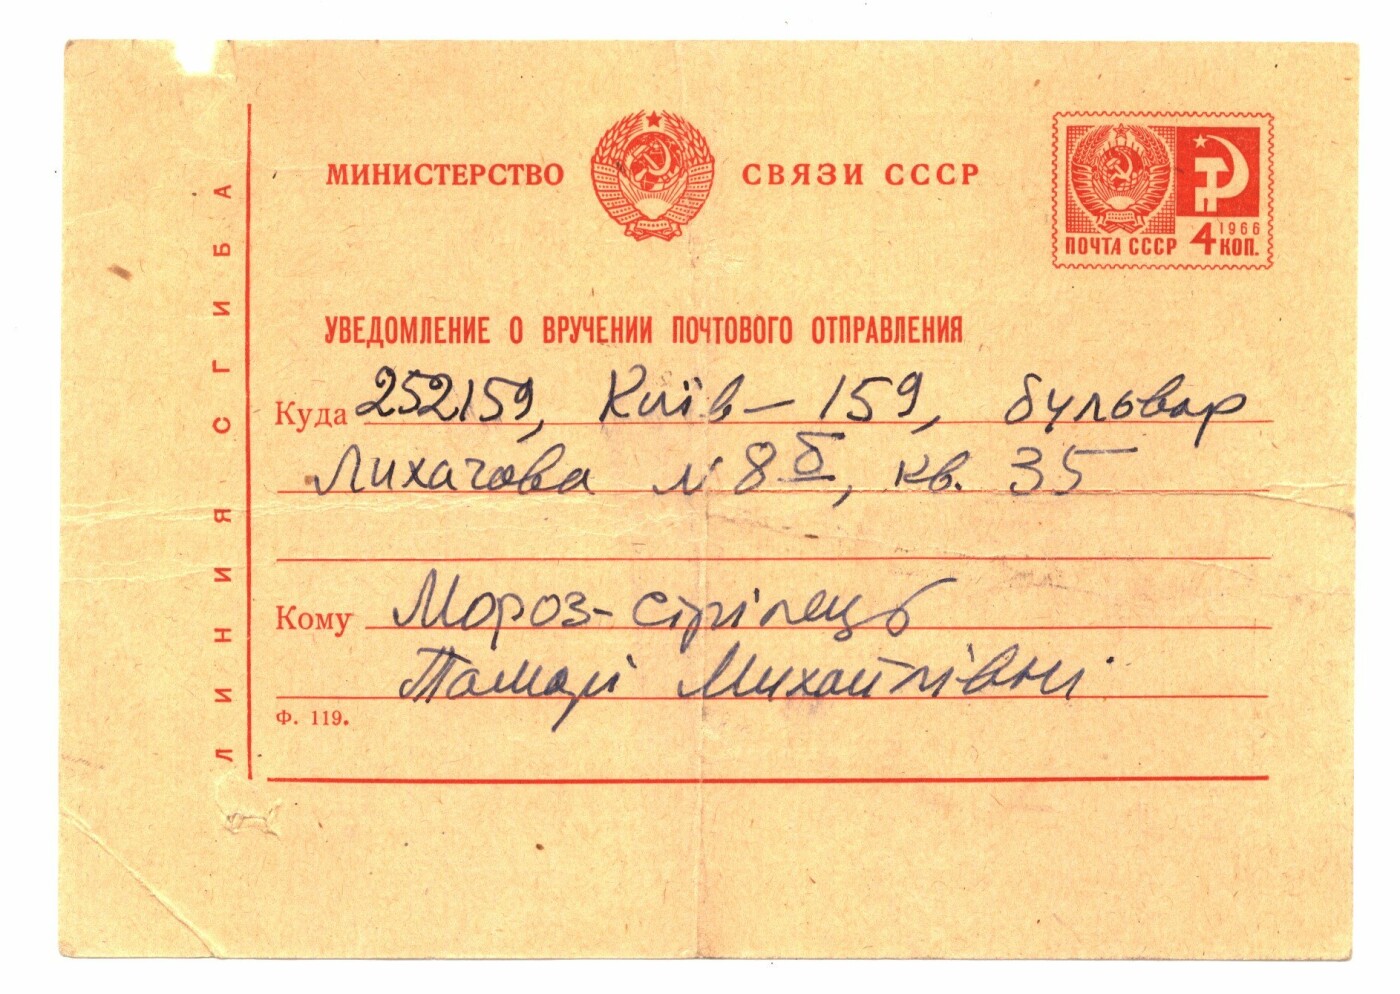 МИНИСТЕРСТВО СВЯЗИ СССР
ПОЧТА СССР 4 КОП. 1966
УВЕДОМЛЕНИЕ О ВРУЧЕНИИ ПОЧТОВОГО ОТПРАВЛЕНИЯ
Куда 252159, Київ – 159, бульвар
Лихачова N 8 б, кв. 35
Кому Мороз-Стрілець
Тамарі Михайлівні
Ф. 119.
ЛИНИЯ СГИБА